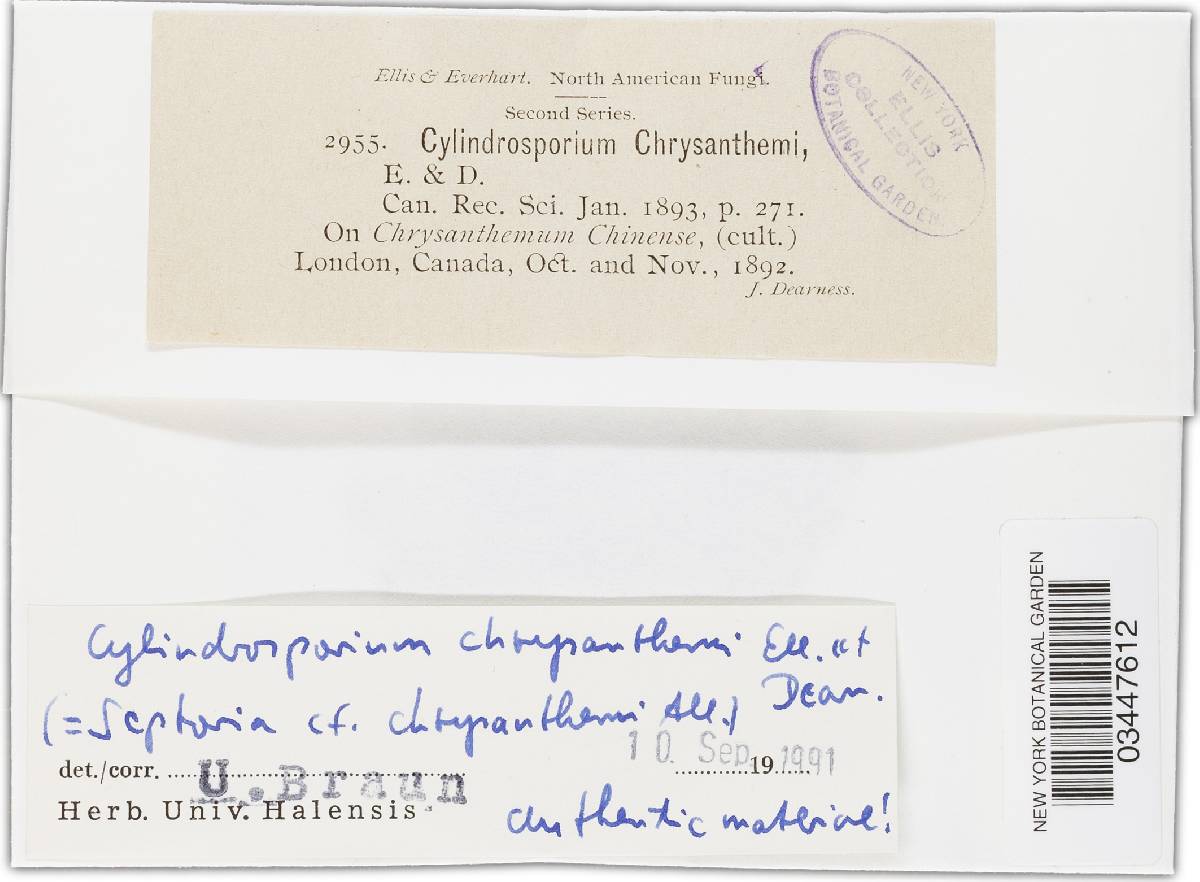 Ellis & Everhart. North American Fungi.
Second Series.
2955. Cylindrosporium Chrysanthemi,
E. & D.
Can. Rec. Sci. Jan. 1893, p. 271.
On Chrysanthemum Chinense, (cult.)
London, Canada, Oct. and Nov., 1892.
J. Dearness.
NEW YORK
ELLIS
COLLECTION
BOTANICAL GARDEN
NEW YORK BOTANICAL GARDEN
03447612
Cylindrosporium chrysanthemi Ell. et
Dearn.
(= Septoria cf. chrysanthemi All.)
10. Sep. 1991
det./corr. U. Braun 19
Herb. Univ. Halensis
authentic material!